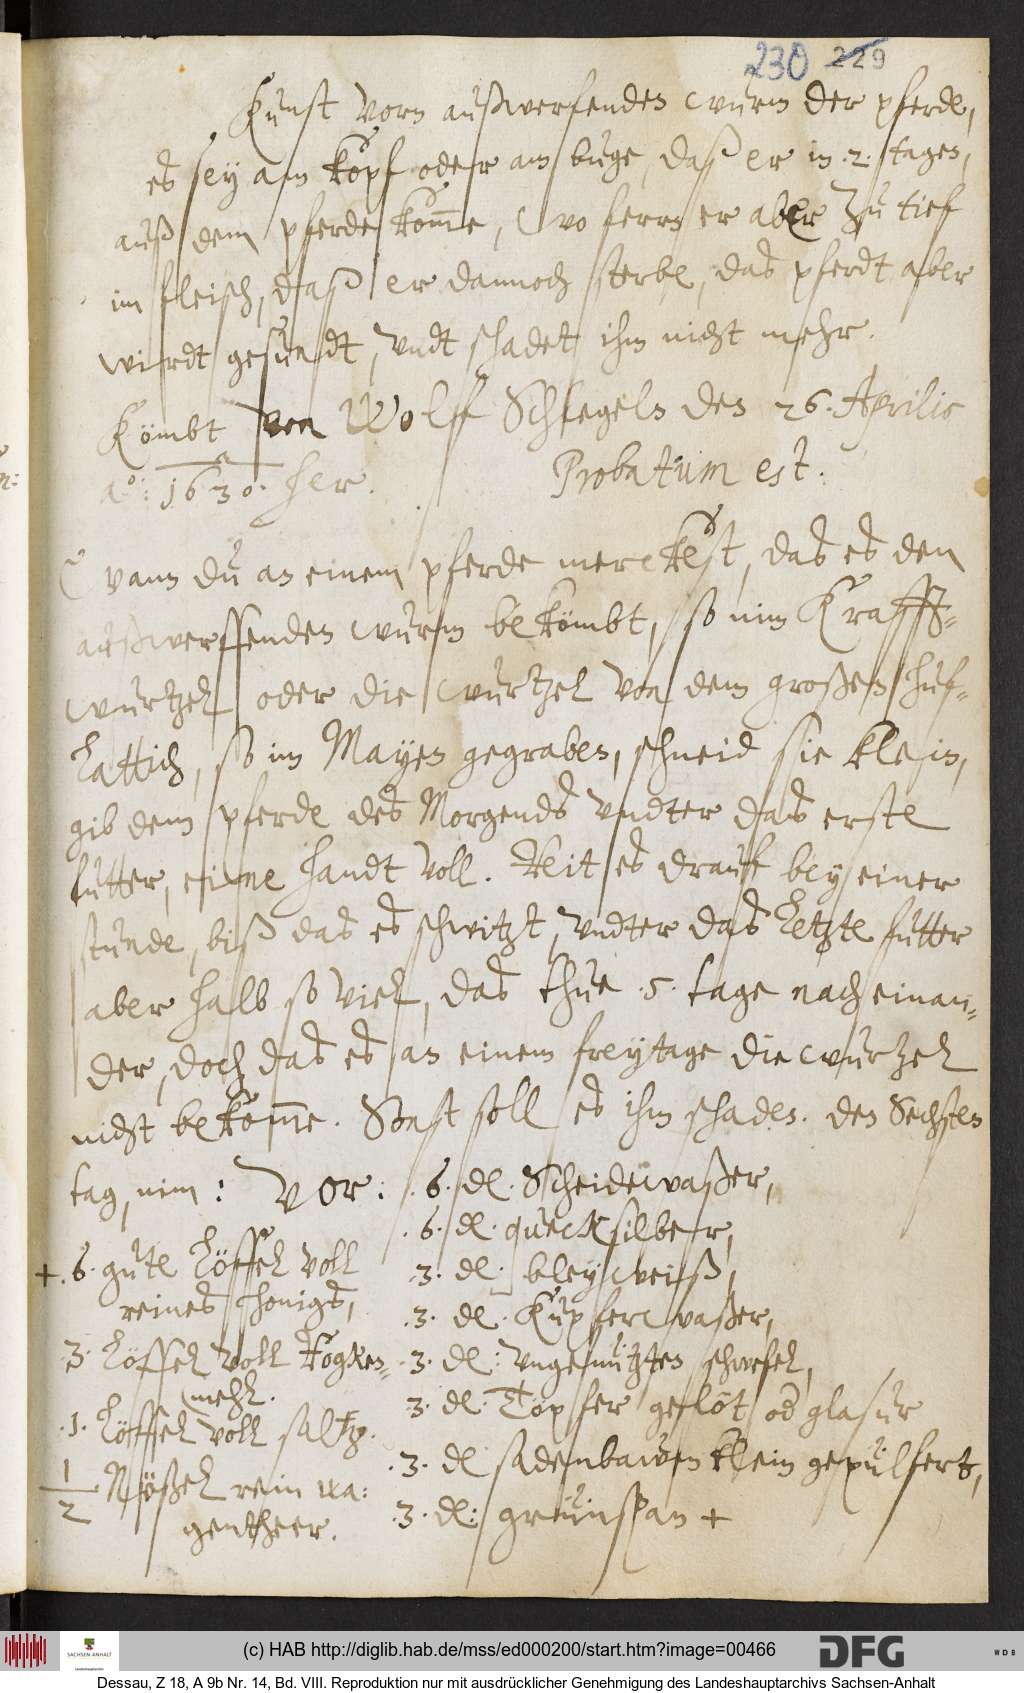 230 229
Kunst vorn außwerfenden wurm der pferde,
es sey am kopf oder am buge, daß er in .2. tagen,
auß dem pferde komme, wo ferrn er aber zu tief
im fleisch, daß er dannoch sterbe, das pferdt aber
wirdt gesundt, vndt schadet ihm nicht mehr.
Kömbt von Wolff Schlegeln den 26. Aprilis
a°: 1630. her. Probatum est.
Wann du an einem pferde merckest, das es den
außwerffenden wurm bekömbt, so nim Krafft-
wurtzel oder die wurtzel von dem großen huf-
lattich, so im Mayen gegraben, schneid sie klein,
gib dem pferde des Morgends vndter das erste
futter, eine handt voll. Reit es drauf bey einer
stunde, biß das es schwitzt, vndter das letzte futter
aber halb so viel, das thue .5. tage nach einan-
der, doch das es an einem freytage die wurtzel
nicht bekomme. Sonst soll es ihm schaden. den Sechsten
tag, nim: Vor:
+ .6. gute löffel voll
reines honigs,
3. löffel voll Rogken-
mehl.
.1. löffel voll saltz.
1/2 Nößel rein wa:
gentheer.
.6. dl. Scheidewaßer,
.6. dl. quecksilber,
.3. dl. bleyweiß,
.3. dl. Kupferwaßer,
.3. dl. vngenützten schwefel,
.3. dl. Töpfer geflöt od glasur
.3. dl sadenbawm klein gepülfert,
.3. dl: grünspan +
(c) HAB http://diglib.hab.de/mss/ed000200/start.htm?image=00466
SACHSEN-ANHALT
Landeshauptarchiv
DFG
WDB
Dessau, Z 18, A 9b Nr. 14, Bd. VIII. Reproduktion nur mit ausdrücklicher Genehmigung des Landeshauptarchivs Sachsen-Anhalt